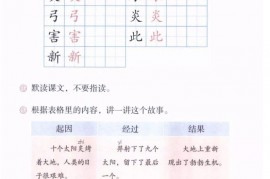 弓 弓 炎 炎
害 害 此 此
新 新
默读课文，不要指读。
根据表格里的内容，讲一讲这个故事。
起因 经过 结果
十个太阳炙烤
着大地，人类的日
子很艰难。
羿射下了九个
太阳，留下了最后
一个。
大地上重新
现出了勃勃生机。